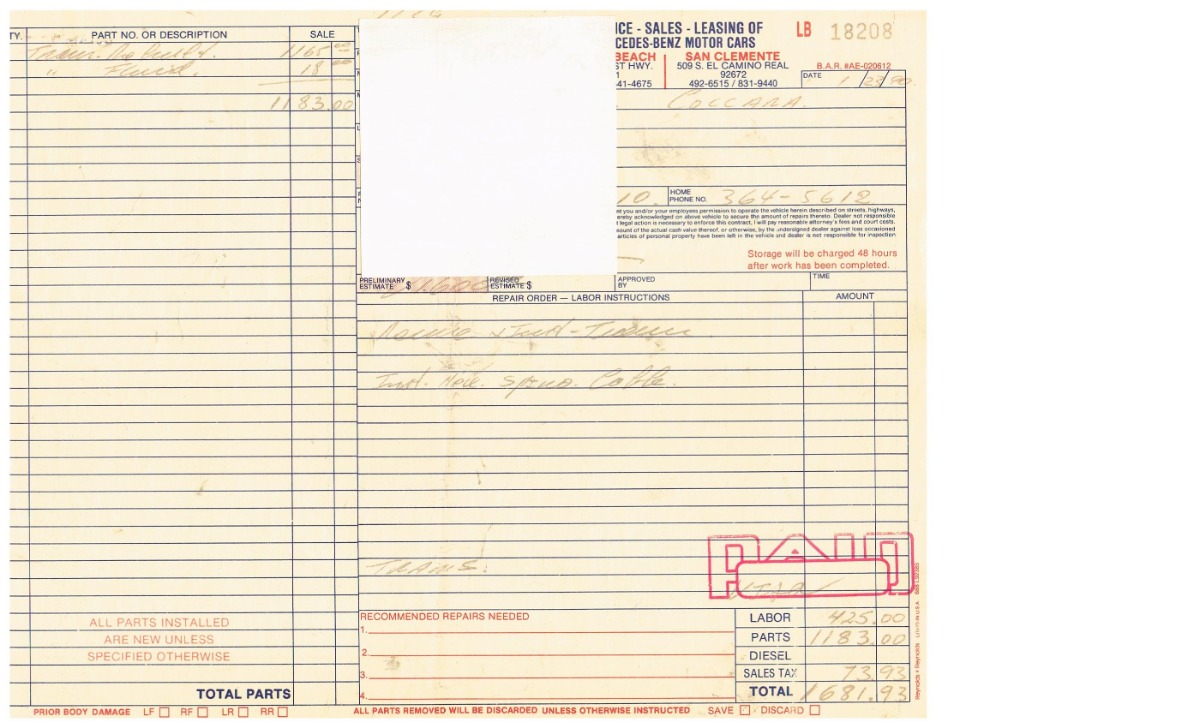 ICE - SALES - LEASING OF
CEDES-BENZ MOTOR CARS
LB 18208
BEACH
ST HWY.
1
41-4675
SAN CLEMENTE
509 S. EL CAMINO REAL
92672
492-6515 / 831-9440
B.A.R. #AE-020612
DATE 1/23/90
TY. PART NO. OR DESCRIPTION SALE
Trans. Rebuild. 1165.00
" Fluid. 18.00
1183.00
COCCARA.
10. HOME PHONE NO. 364-5612
at you and/or your employees permission to operate the vehicle herein described on streets, highways,
ereby acknowledged on above vehicle to secure the amount of repairs thereto. Dealer not responsible
legal action is necessary to enforce this contract, I will pay reasonable attorney's fees and court costs.
ount of the actual cash value thereof, or otherwise, by the undersigned dealer against loss occasioned
articles of personal property have been left in the vehicle and dealer is not responsible for inspection
Storage will be charged 48 hours
after work has been completed.
PRELIMINARY ESTIMATE $
REVISED ESTIMATE $
APPROVED BY
TIME
REPAIR ORDER — LABOR INSTRUCTIONS AMOUNT
Trans
Cable.
TRANS.
PAID
ALL PARTS INSTALLED
ARE NEW UNLESS
SPECIFIED OTHERWISE
TOTAL PARTS
RECOMMENDED REPAIRS NEEDED
1.
2.
3.
4.
LABOR 425.00
PARTS 1183.00
DIESEL
SALES TAX 73.93
TOTAL 1681.93
PRIOR BODY DAMAGE LF RF LR RR
ALL PARTS REMOVED WILL BE DISCARDED UNLESS OTHERWISE INSTRUCTED SAVE DISCARD